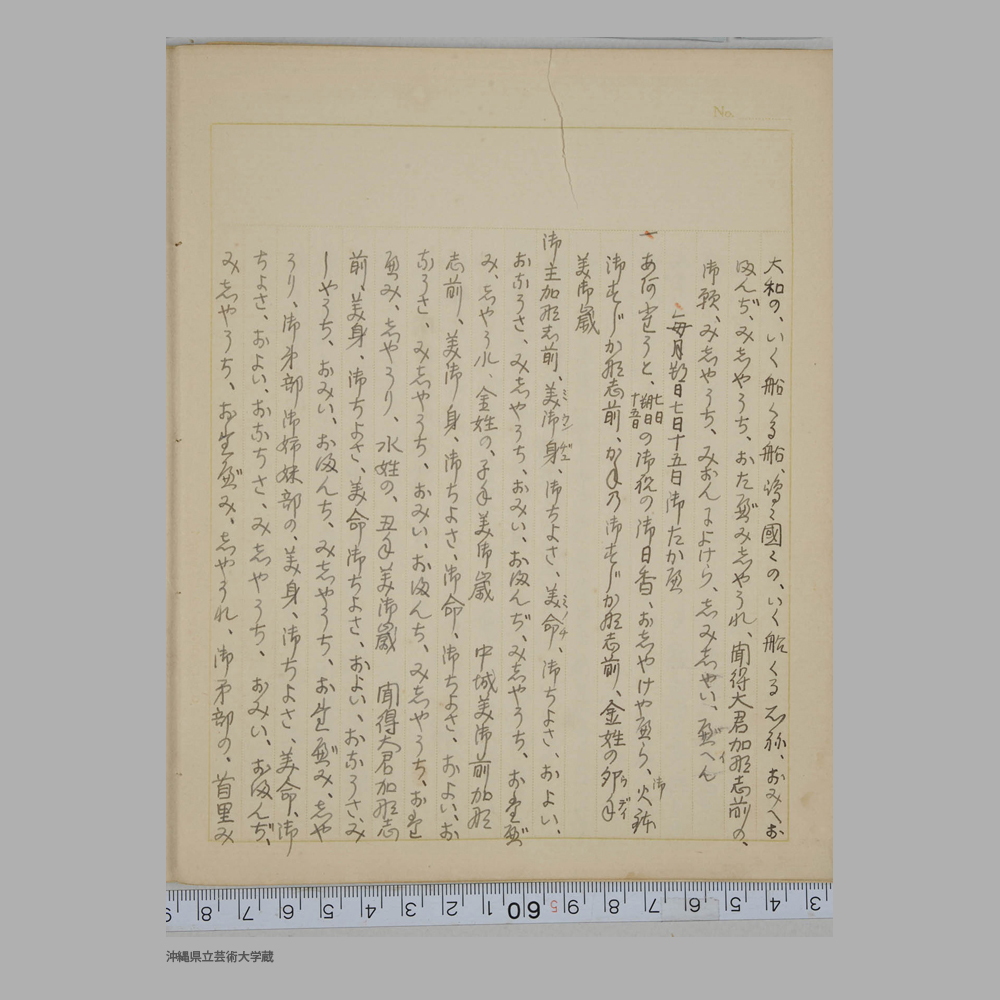 No.
大和の、いく船くる船、嶋々國々の、いく船くる船、おみへお
ほんぢ、みしやうち、おた盤みしやうれ、聞得大君加那志前の、
御願、みしやうち、みおんによけら、しみしやい、盤へん
毎月朔日七日十五日御たか盤
一 あ何せうと、朔日七日十五日の御役の御日香、おしやけや盤ら、火鉢御
御すじか那志前、かねの御すじか那志前、金姓の卯年ウデイ
美御歳
御主加那志前、美御身、御ちよさ、美命、御ちよさ、およい、
おなうさ、みしやうち、おみい、おほんぢ、みしやうち、お生盤
み、しやうれ、金姓の、子年美御歳 中城美御前加那
志前、美御身、御ちよさ、御命、御ちよさ、およい、お
なうさ、みしやうち、おみい、おほんち、みしやうち、お生
盤み、しやうり、水姓の、丑年美御歳 聞得大君加那志
前、美身、御ちよさ、美命御ちよさ、およい、おなうさ、み
しやうち、おみい、おほんち、みしやうち、お生盤み、しや
うり、御弟部御姉妹部の、美身、御ちよさ、美命、御
ちよさ、およい、おなちさ、みしやうち、おみい、おほんぢ、
み、しやうち、お生盤み、しやうれ、御弟部の、首里み
3 4 5 6 7 8 9 60 1 2 3 4 5 6 7 8 9
沖縄県立芸術大学蔵